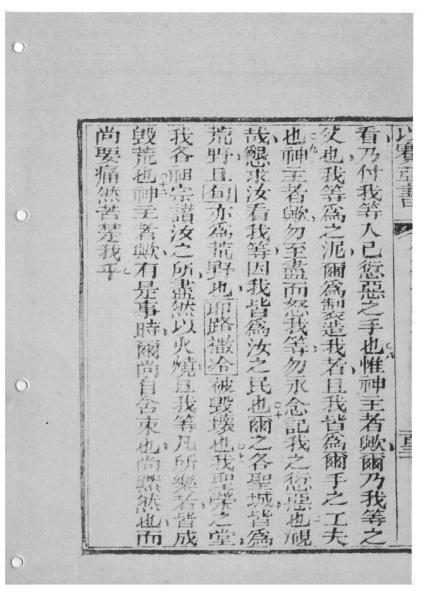 以賽亞書
看乃付我等人已愆惡之手也惟神主者歟爾乃我等之
父也我等為之泥爾為製造我者且我皆為爾手之工夫
也神主者歟勿至盡而怒我等勿永念記我之愆惡也視
哉懇求汝看我等因我皆為汝之民也爾之各聖城皆為
荒野且旬亦為荒野也耶路撒冷被毀壞也我聖榮之堂
我各祖宗讚汝之所盡然以火燒且我等凡所樂者皆成
毀荒也神主者歟有是事時爾尚自含束也尚默然也而
尚要痛然苦楚我乎